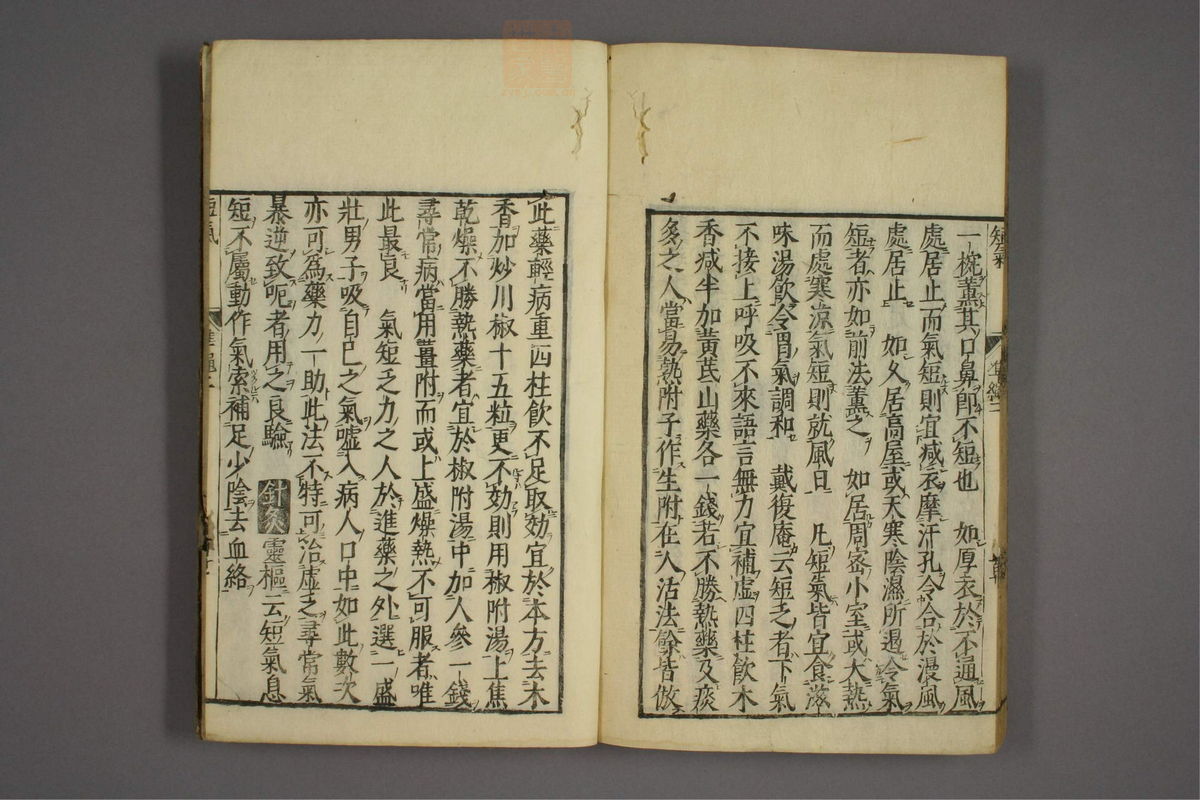 短氣
一椀薰其口鼻即不短也　如厚衣於不通風
處居止而氣短則宜減衣摩汗孔令合於漫風
處居止　如久居高屋或天寒陰濕所遏令氣
短者亦如前法薰之　如居周密小室或大熱
而處寒涼氣短則就風日　凡短氣皆宜食滋
味湯飲令胃氣調和　戴復庵云短乏者下氣
不接上呼吸不來語言無力宜補虛四柱飲木
香減半加黃茋山藥各一錢若不勝熱藥及痰
多之人當易熟附子作生附在人活法餘皆倣
此藥輕病重四柱飲不足取効宜於本方去木
香加炒川椒十五粒更不効則用椒附湯上焦
乾燥不勝熱藥者宜於椒附湯中加人參一錢
尋常病當用薑附而或上盛燥熱不可服者唯
此最良　氣短乏力之人於進藥之外選一盛
壯男子吸自己之氣噓入病人口中如此數次
亦可爲藥力一助此法不特可治虛乏尋常氣
暴逆致呃者用之良驗　針灸　靈樞云短氣息
短不屬動作氣索補足少陰去血絡
短氣